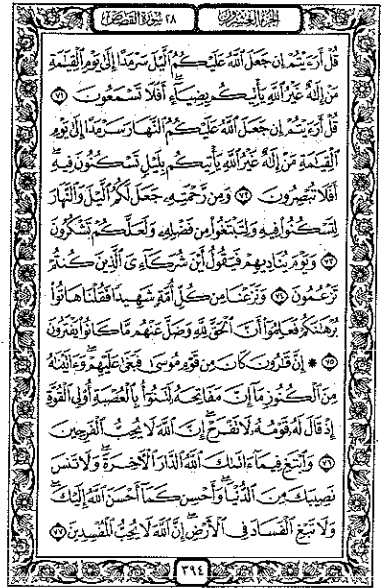 الجزء العشرون ٢٨ سورة القصص
قُلْ أَرَءَيْتُمْ إِن جَعَلَ ٱللَّهُ عَلَيْكُمُ ٱلَّيْلَ سَرْمَدًا إِلَىٰ يَوْمِ ٱلْقِيَٰمَةِ
مَنْ إِلَٰهٌ غَيْرُ ٱللَّهِ يَأْتِيكُم بِضِيَآءٍ ۖ أَفَلَا تَسْمَعُونَ ٧١
قُلْ أَرَءَيْتُمْ إِن جَعَلَ ٱللَّهُ عَلَيْكُمُ ٱلنَّهَارَ سَرْمَدًا إِلَىٰ يَوْمِ
ٱلْقِيَٰمَةِ مَنْ إِلَٰهٌ غَيْرُ ٱللَّهِ يَأْتِيكُم بِلَيْلٍ تَسْكُنُونَ فِيهِ ۖ
أَفَلَا تُبْصِرُونَ ٧٢ وَمِن رَّحْمَتِهِۦ جَعَلَ لَكُمُ ٱلَّيْلَ وَٱلنَّهَارَ
لِتَسْكُنُوا۟ فِيهِ وَلِتَبْتَغُوا۟ مِن فَضْلِهِۦ وَلَعَلَّكُمْ تَشْكُرُونَ
٧٣ وَيَوْمَ يُنَادِيهِمْ فَيَقُولُ أَيْنَ شُرَكَآءِىَ ٱلَّذِينَ كُنتُمْ
تَزْعُمُونَ ٧٤ وَنَزَعْنَا مِن كُلِّ أُمَّةٍ شَهِيدًا فَقُلْنَا هَاتُوا۟
بُرْهَٰنَكُمْ فَعَلِمُوٓا۟ أَنَّ ٱلْحَقَّ لِلَّهِ وَضَلَّ عَنْهُم مَّا كَانُوا۟ يَفْتَرُونَ
٧٥ ۞ إِنَّ قَٰرُونَ كَانَ مِن قَوْمِ مُوسَىٰ فَبَغَىٰ عَلَيْهِمْ ۖ وَءَاتَيْنَٰهُ
مِنَ ٱلْكُنُوزِ مَآ إِنَّ مَفَاتِحَهُۥ لَتَنُوٓأُ بِٱلْعُصْبَةِ أُو۟لِى ٱلْقُوَّةِ
إِذْ قَالَ لَهُۥ قَوْمُهُۥ لَا تَفْرَحْ ۖ إِنَّ ٱللَّهَ لَا يُحِبُّ ٱلْفَرِحِينَ
٧٦ وَٱبْتَغِ فِيمَآ ءَاتَىٰكَ ٱللَّهُ ٱلدَّارَ ٱلْءَاخِرَةَ ۖ وَلَا تَنسَ
نَصِيبَكَ مِنَ ٱلدُّنْيَا ۖ وَأَحْسِن كَمَآ أَحْسَنَ ٱللَّهُ إِلَيْكَ ۖ
وَلَا تَبْغِ ٱلْفَسَادَ فِى ٱلْأَرْضِ ۖ إِنَّ ٱللَّهَ لَا يُحِبُّ ٱلْمُفْسِدِينَ ٧٧
٣٩٤